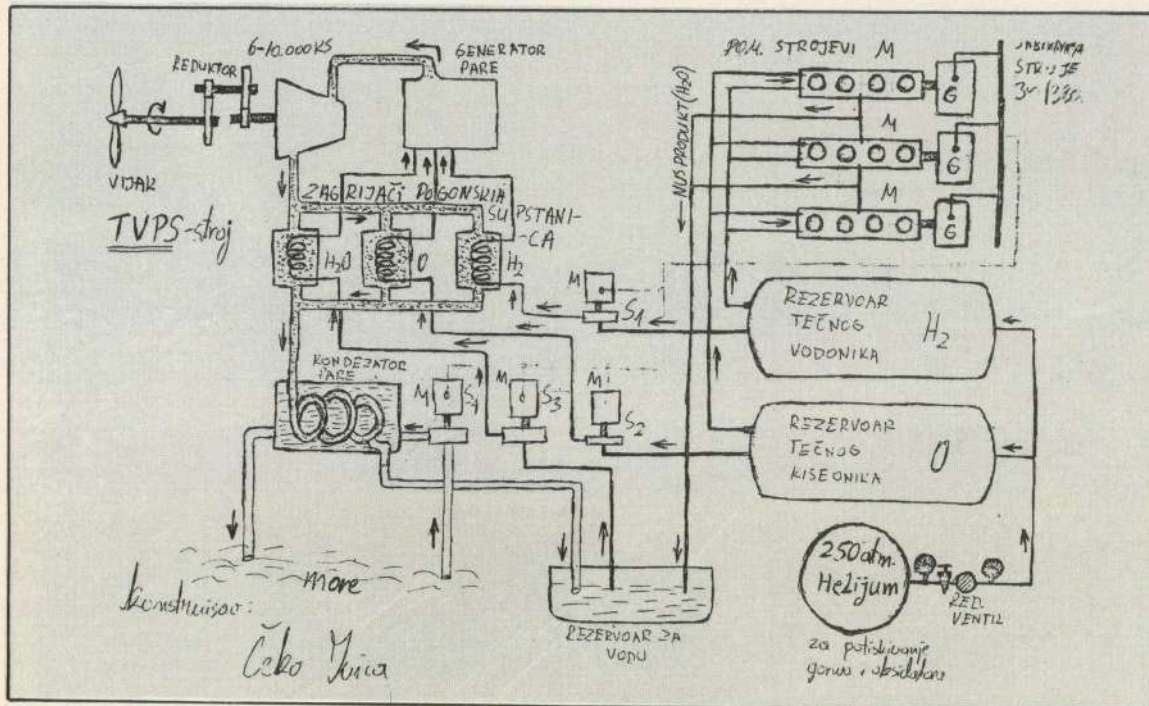 6-10.000 KS
REDUKTOR
GENERATOR
PARE
VIJAK
TVPS-stroj
ZAGRIJAČI POGONSKIA
SUPSTANI-
-CA
H₂O
O
H₂
KONDEZATOR
PARE
M S4
M S3
M S2
M S1
more
konstruisao:
Čeko Ivica
REZERVOAR ZA
VODU
POM. STROJEVI M
M
M
G
G
G
STRUJE
NUSPRODUKT (H₂O)
REZERVOAR
TEČNOG
VODONIKA
H₂
REZERVOAR
TEČNOG
KISEONIKA
O
250 atm.
Helijum
RED.
VENTIL
za potiskivanje
goriva i oksidatora